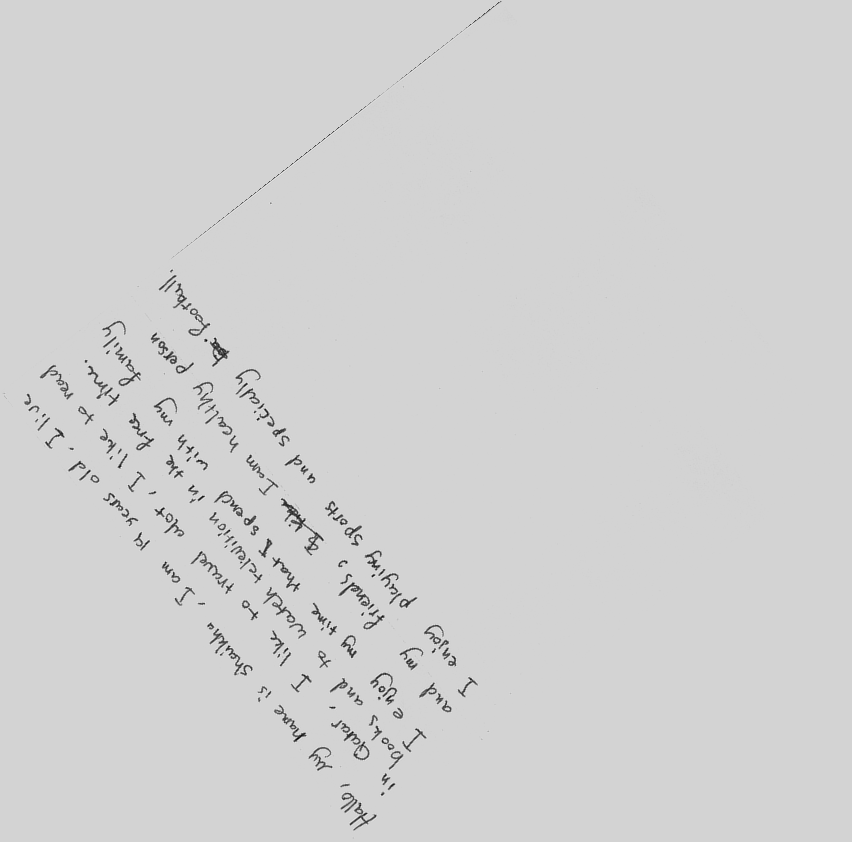 Hallo, my name is Shaikha, I am 19 years old. I live
in Qatar, I like to travel alot, I like to read
books and to watch televition in the free time.
I enjoy my time that I spend with my family
and my friends, I am healthy person
I enjoy playing sports and specially football.